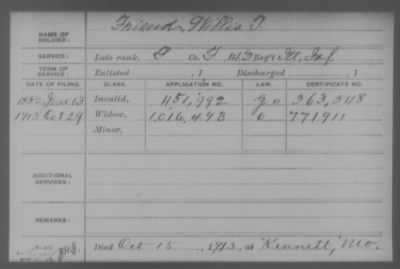 NAME OF SOLDIER: Friend, Willis T.
SERVICE: Late rank, P Co. F, 113 Reg't Ill. Inf.
TERM OF SERVICE: Enlisted , 1 Discharged , 1
DATE OF FILING. CLASS. APPLICATION NO. LAW. CERTIFICATE NO.
1882 June 13 Invalid, 451,792 363,548
1913 Oct 29 Widow, 1,016,493 771911
Minor,
ADDITIONAL SERVICES:
REMARKS:
Died Oct 15, 1913, at Kennett, Mo.